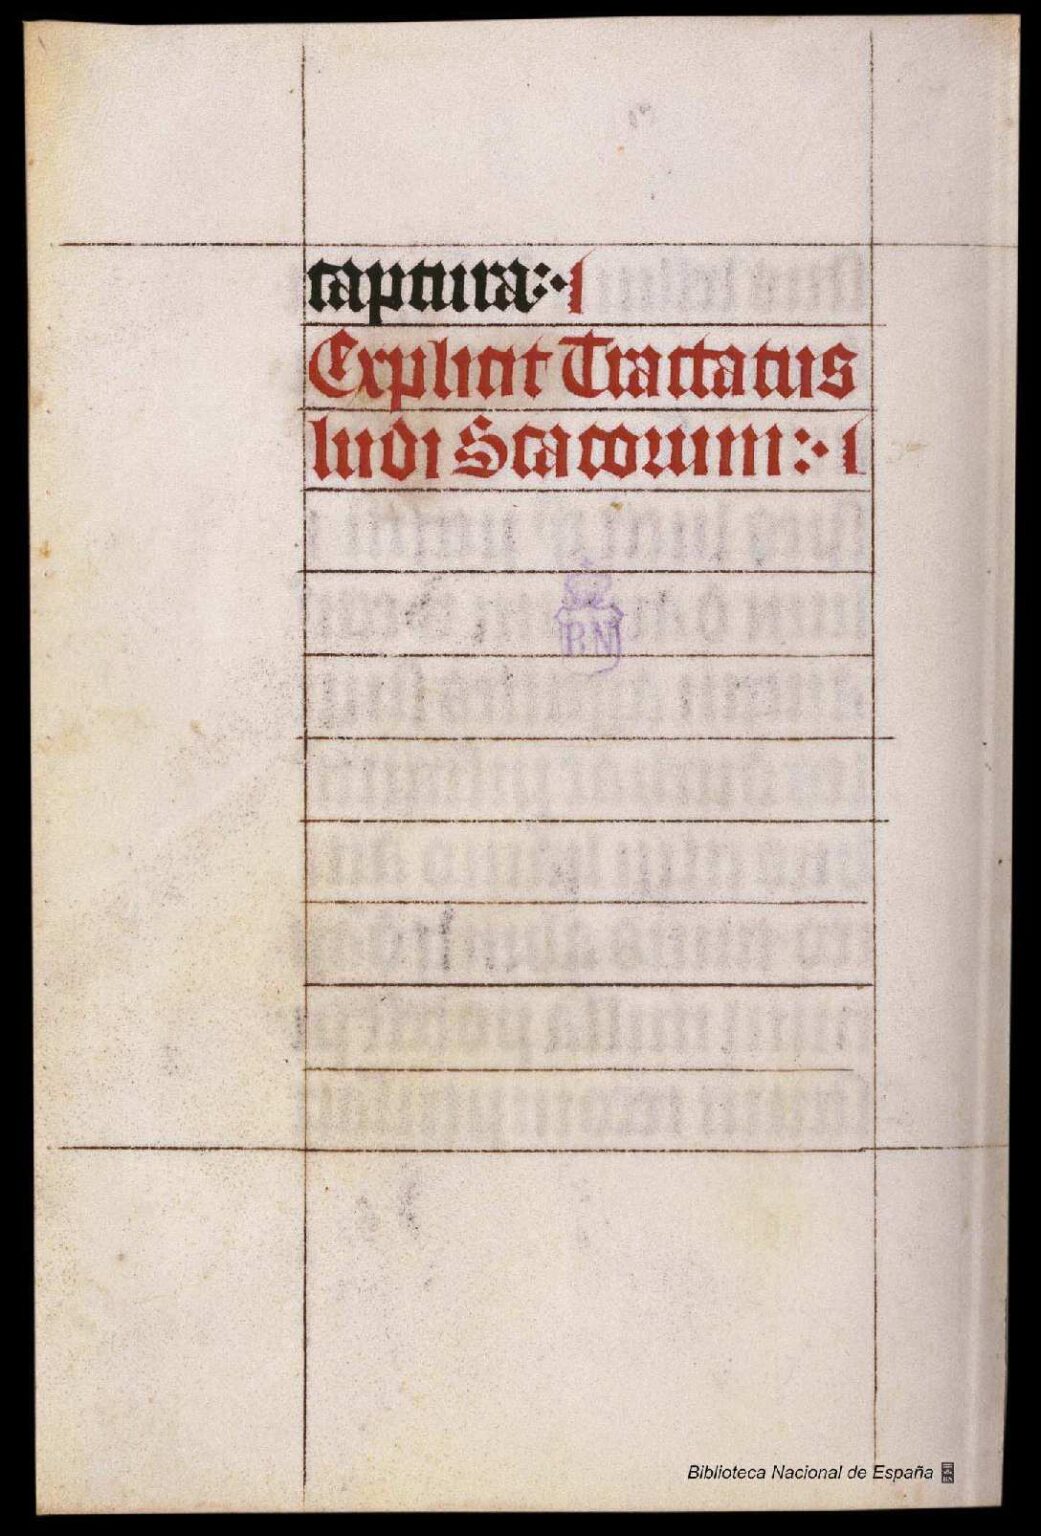 captura:·
Explicit Tractatus
ludi Scacorum:·
BN
Biblioteca Nacional de España